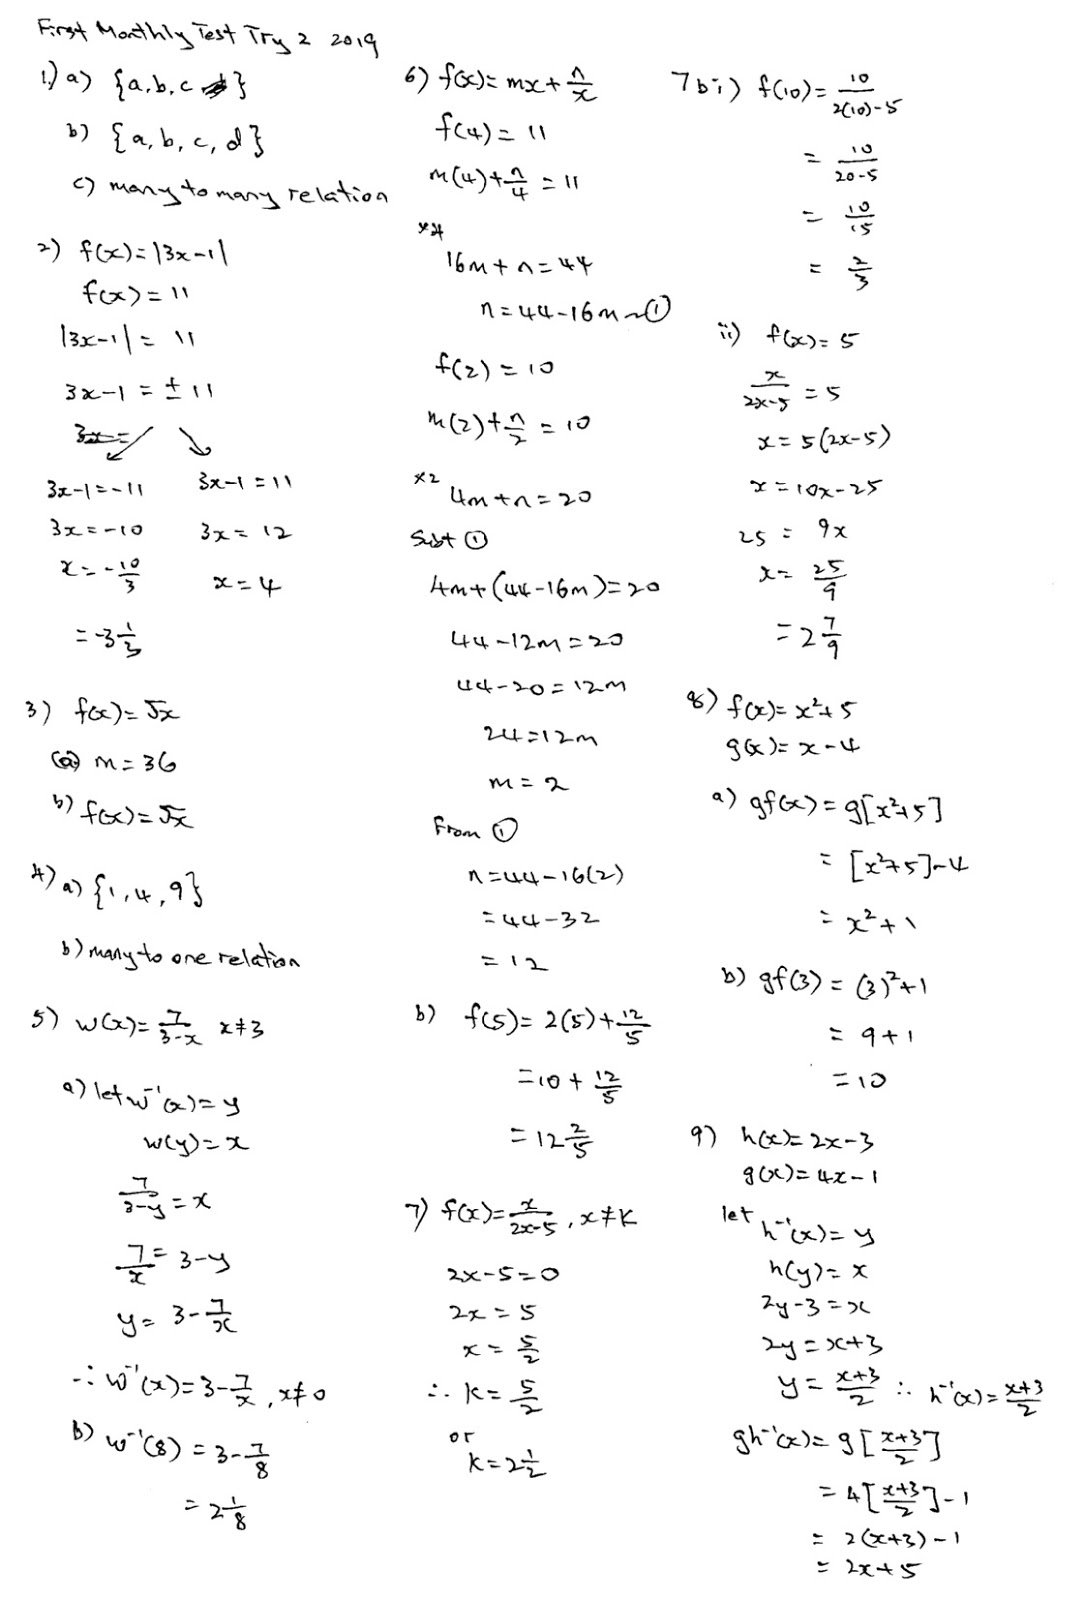 First Monthly Test Try 2 2019
1) a) {a, b, c}
b) {a, b, c, d}
c) many to many relation
2) f(x) = |3x-1|
f(x) = 11
|3x-1| = 11
3x-1 = ± 11
3x=
3x-1 = -11 3x-1 = 11
3x = -10 3x = 12
x = -10/3 x = 4
= -3 1/3
3) f(x) = √x
(a) m = 36
b) f(x) = √x
4) a) {1, 4, 9}
b) many to one relation
5) w(x) = 7/(3-x) x≠3
a) let w⁻¹(x) = y
w(y) = x
7/(3-y) = x
7/x = 3-y
y = 3 - 7/x
∴ w⁻¹(x) = 3 - 7/x, x≠0
b) w⁻¹(8) = 3 - 7/8
= 2 1/8
6) f(x) = mx + n/x
f(4) = 11
m(4) + n/4 = 11
×4
16m + n = 44
n = 44 - 16m ~ ①
f(2) = 10
m(2) + n/2 = 10
×2
4m + n = 20
Subt ①
4m + (44-16m) = 20
44 - 12m = 20
44 - 20 = 12m
24 = 12m
m = 2
From ①
n = 44 - 16(2)
= 44 - 32
= 12
b) f(5) = 2(5) + 12/5
= 10 + 12/5
= 12 2/5
7) f(x) = x/(2x-5), x≠k
2x - 5 = 0
2x = 5
x = 5/2
∴ k = 5/2
or
k = 2 1/2
7bi) f(10) = 10/(2(10)-5)
= 10/(20-5)
= 10/15
= 2/3
ii) f(x) = 5
x/(2x-5) = 5
x = 5(2x-5)
x = 10x - 25
25 = 9x
x = 25/9
= 2 7/9
8) f(x) = x²+5
g(x) = x-4
a) gf(x) = g[x²+5]
= [x²+5]-4
= x²+1
b) gf(3) = (3)²+1
= 9+1
= 10
9) h(x) = 2x-3
g(x) = 4x-1
let h⁻¹(x) = y
h(y) = x
2y-3 = x
2y = x+3
y = (x+3)/2 ∴ h⁻¹(x) = (x+3)/2
gh⁻¹(x) = g[(x+3)/2]
= 4[(x+3)/2]-1
= 2(x+3)-1
= 2x+5